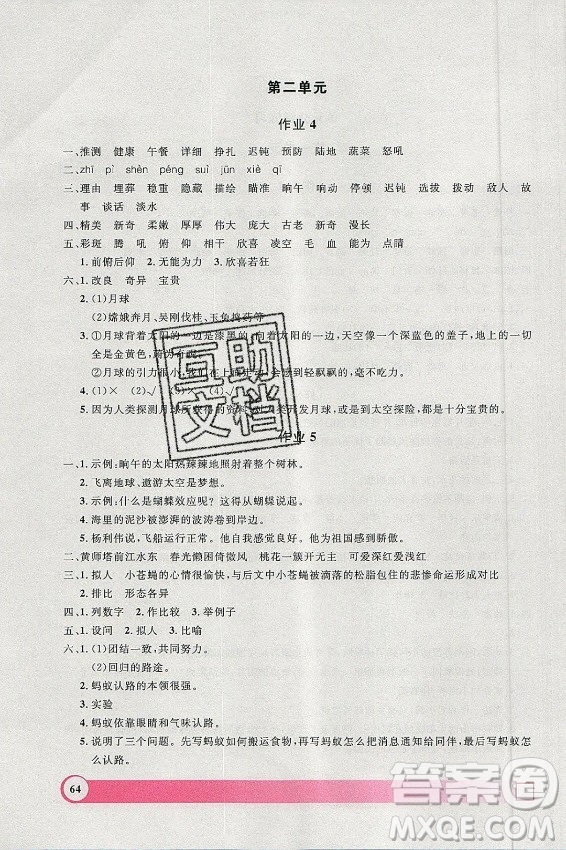 第二单元
作业 4
一、推测 健康 午餐 详细 挣扎 迟钝 预防 陆地 蔬菜 怒吼
二、zhī pì shèn péng suì jūn xiè qī
三、理由 埋葬 稳重 隐藏 描绘 瞄准 晌午 响动 停顿 迟钝 选拔 拨动 敌人 故
事 谈话 淡水
四、精美 新奇 柔嫩 厚厚 伟大 庞大 古老 新奇 漫长
五、彩斑 腾 吼 俯 仰 相干 欣喜 凌空 毛 血 能为 点睛
1. 前俯后仰 2. 无能为力 3. 欣喜若狂
六、1. 改良 奇异 宝贵
2. (1)月球
(2)嫦娥奔月、吴刚伐桂、玉兔捣药等
3. ①月球背着太阳的一边是漆黑的，向着太阳的一边，天空像一个深蓝色的盖子，地上的一切
全是金黄色，
②月球的引力很小，我们在上面走动，会感到轻飘飘的，甚至能飞
4. (1)× (2)√
5. 因为人类探测月球所获得的资料，对人类开发月球，或是太空探险，都是十分宝贵的。
作业 5
一、1. 示例：晌午的太阳热辣辣地照射着整个树林。
2. 飞离地球、遨游太空是梦想。
3. 示例：什么是蝴蝶效应呢？这得从蝴蝶说起。
4. 海里的泥沙被澎湃的波涛卷到岸上。
5. 杨利伟说，飞船运行正常。他自我感觉良好。他为祖国感到骄傲。
二、黄师塔前江水东 春光懒困倚微风 桃花一簇开无主 可爱深红爱浅红
三、1. 拟人 小苍蝇的心情很愉快，与后文中小苍蝇被滴落的松脂包住的悲惨命运形成对比
2. 排比 形态各异
四、1. 列数字 2. 作比较 3. 举例子
五、1. 设问 2. 拟人 3. 比喻
六、1. (1)团结一致，共同努力。
(2)回归的路途。
2. 蚂蚁认路的本领很强。
3. 实验
4. 蚂蚁依靠眼睛和气味认路。
5. 说明了三个问题。先写蚂蚁如何搬运食物，再写蚂蚁怎么把消息通知给同伴，最后写蚂蚁怎
么认路。
64
互助
文档
答案圈
MXQE.COM